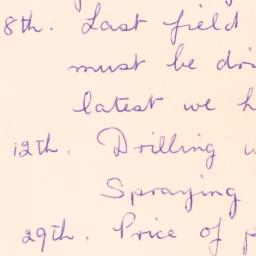 8th. Last field
must be dri
latest we h
12th. Drilling w
Spraying
29th. Price of p